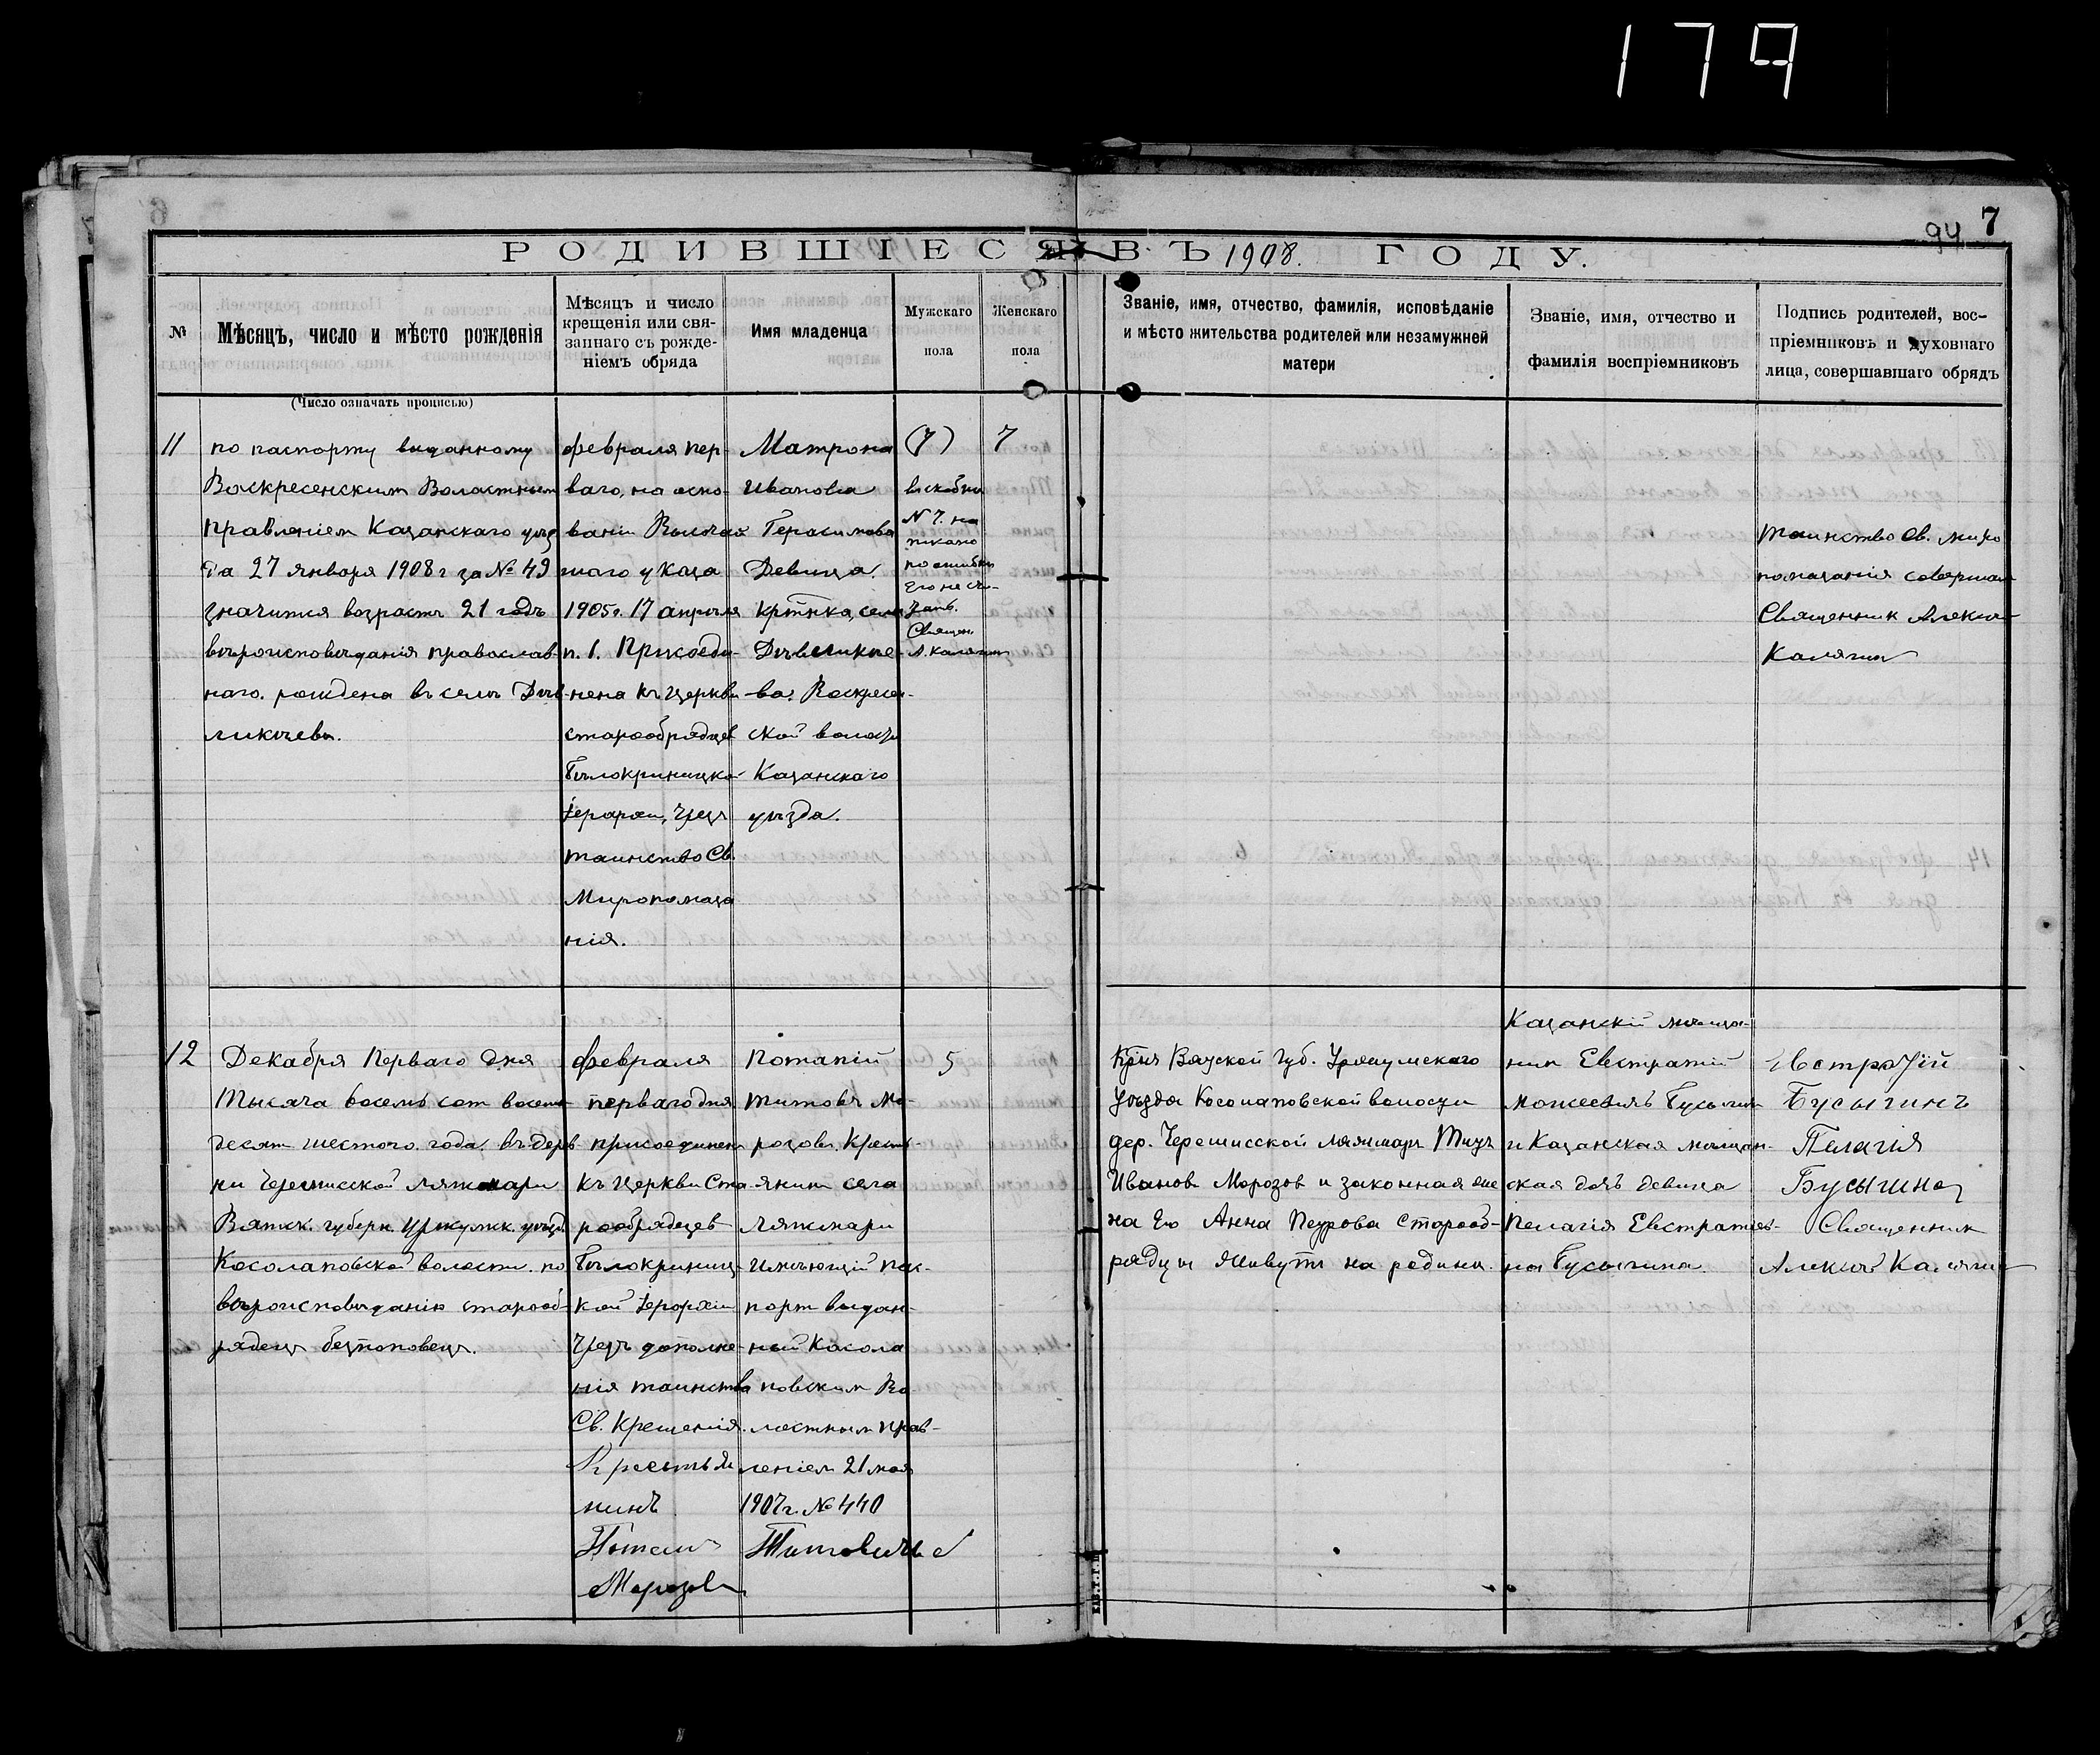 179
94 7
РОДИВШІЕСЯ ВЪ 1908. ГОДУ.
№
Мѣсяцъ, число и мѣсто рожденія
(Число означать прописью)
Мѣсяцъ и число
крещенія или свя-
заннаго съ рожде-
ніемъ обряда
Имя младенца
Мужскаго
пола
Женскаго
пола
Званіе, имя, отчество, фамилія, исповѣданіе
и мѣсто жительства родителей или незамужней
матери
Званіе, имя, отчество и
фамилія воспріемниковъ
Подпись родителей, вос-
пріемниковъ и духовнаго
лица, совершавшаго обрядъ
11
по паспорту выданному
Воскресенскимъ Волостным
Правленіем Казанскаго уѣз
да 27 января 1908 г за № 49
значится возрастъ 21 годъ
вѣроисповѣданія православ-
наго. рождена въ селѣ Дѣв
ликѣеви.
февраля пер-
ваго, на осно-
ваніи Высочай
шаго указа
1905 г. 17 апрѣля
п. 1. Присоеди-
нена къ церкви
старообрядцев
Бѣлокриницкой
Іерархіи, чрез
таинство Св.
Миропомаза
нія.
Матрона
Иванова
Герасимова
Девица.
Кртнка, села
Дѣвликѣе-
ва. Воскресен-
ской волости
Казанскаго
уѣзда.
(7)
в скобки
№ 7. на
писано
по ошибки
Его не счи-
тать.
Священ.
А. Калягин
7
Таинство Св. миро
помазанія совершал
Священник Алексей
Калягин
12
Декабря Перваго дня
Тысяча восемь сот восемь
десят шестого года. въ дерев
ни Черемисской Ляжмари
Вятск. губерн. Уржумск. уѣзд.
Косолаповской волости. по
вѣроисповѣданію старооб-
рядец безпоповец.
февраля
перваго дня
присоединен
къ Церкви Ста
рообрядцев
Бѣлокриниц-
кой Іерархіи
чрезъ дополне-
нія таинства
Св. Крещенія.
Крестья
нинъ
Потапий
Морозов
Потапій
Титовъ Мо-
розов. Кресть-
янин села
Ляжмари
Имѣющій пас-
порт выдан-
ный Косола
повским Во
лостным прав-
леніем 21 мая
1907 г. № 440
Титовичъ
5
Крнъ Вятской Губ. Уржумскаго
Уѣзда Косолаповской волости
дер. Черемисской Ляжмари Титъ
Иванов Морозов и законная же
на Его Анна Петрова Старооб-
рядцы Живутъ на родине.
Казанскій мѣща-
нин Евстратій
Моисеевичъ Бусыгин
и Казанская мѣщан-
ская дочь девица
Пелагія Евстратьев-
на Бусыгина.
Евстратій
Бусыгинъ
Пелагія
Бусыгина
Священник
Алексѣй Калягин